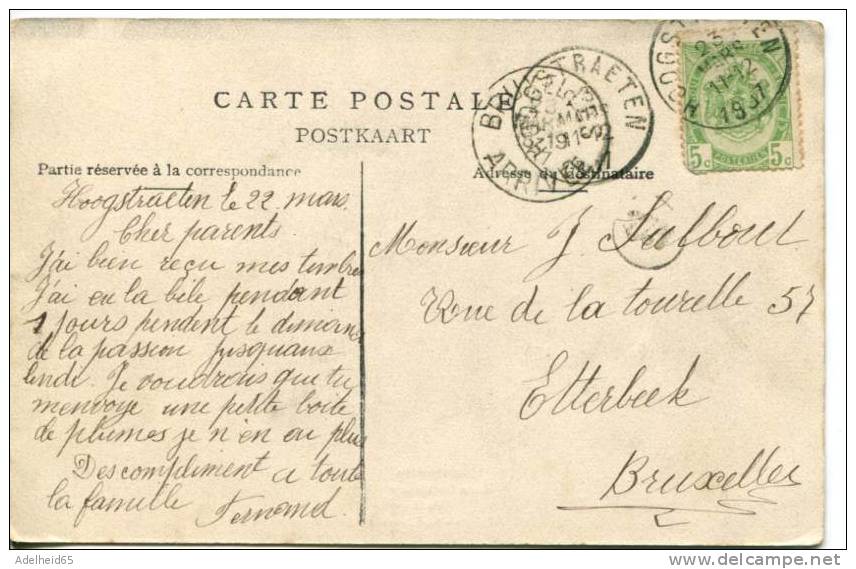 CARTE POSTALE
POSTKAART
Partie réservée à la correspondance
Adresse du destinataire
HOOGSTRAETEN
23 MARS
11-12
1907
HOOGSTRAETEN
ARRIVÉE
5c POSTERIJEN 5c
Hoogstraeten le 22 mars.
Cher parents.
J'ai bien reçu mes timbres
J'ai eu la bile pendant
jours pendent le dimanc
de la passion jusquaux
lendi. Je voudrois que tu
menvoye une petite boite
de plumes je n'en ai plus
Des compliment a toute
la famille Fernand.
Monsieur J.
Rue de la tourelle 57
Etterbeek
Bruxelles
Adelheid65
www.delcampe.net